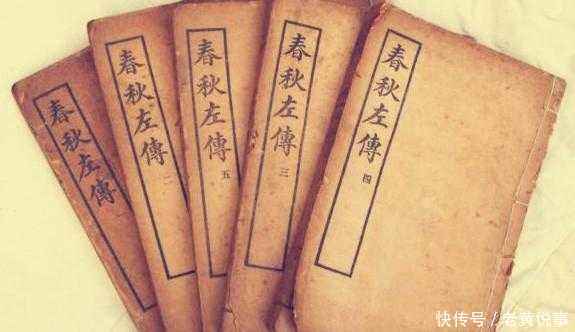 春秋左傳
春秋左傳 二
春秋左傳 五
春秋左傳 三
春秋左傳 四
快传号 / 老黄说事